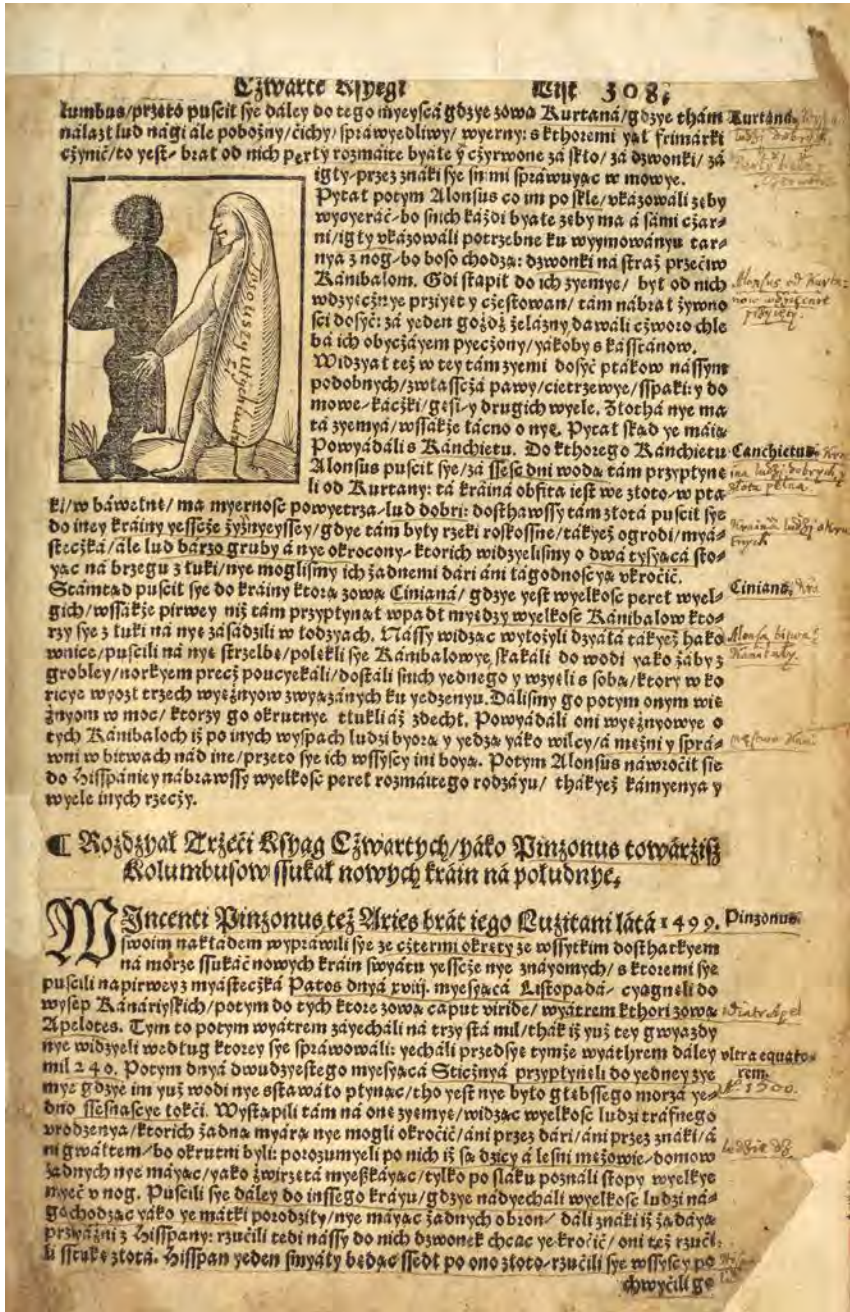 Cżwarte Kśyęgi List 308,
lumbus/przeto puścił sye dáley do tego myeyscá gdzye zową Kurtaná/gdzye thám Kurtaná
nálazł lud nagi ále pobożny/ćichy/spráwyedliwy/wyerny: s kthoremi yął frimárki
cżynić/to yest- brał od nich perły rozmáite byałe y cżyrwone zá skło/zá dzwonki/zá
igły-przez znáki sye s nimi spráwuyąc w mowye.
Pytał potym Alonsus co im po skle/vkázowáli zęby
wycyeráć-bo s nich káżdi byałe zęby ma á sámi cżar-
ni/igły vkázowáli potrzebne ku wyymowányu tar-
nya z nog-bo boso chodzą: dzwonki ná straż przećiw
Kánibalom. Gdi stąpił do ich zyemye/ był od nich
wdzyęcżnye przyięt y cżestowan/ tám nábrał żywno
śći dosyć: zá yeden goźdź żelázny dawáli cżworo chle
bá ich obycżáyem pyecżony/yákoby s kásstanow.
Widzyał też w tey tám zyemi dosyć ptakow nássym
podobnych/zwłasscżá páwy/cietrzewye/sspaki: y do
mowe-kacżki/gęsi-y drugich wyele. Złothá nye ma
tá zyemyá/wssákże łácno o nye. Pytał skąd ye máią
Powyádáli s Kánchietu. Do kthorego Kánchietu Canchietus
Alonsus puścił sye/zá ssesć dni wodą tám przypłynę
li od Kurtany: tá kráiná obfita iest we złoto-w pta
ki/w báwełnę/ ma myerność powyetrza-lud dobri: dosthawssy tám złotá puścił sye
do iney kráiny yesscże żyżnyeyssey/gdye tám były rzeki roskossne/tákyeż ogrodi/myá-
stecżká/ále lud bárzo gruby á nye okrocony-ktorich widzyelismy o dwá tysyącá sto-
yąc ná brzegu z łuki/nye moglismy ich żadnemi dári áni łágodnoscyą vkroćić.
Stámtąd puścił sye do kráiny ktorą zową Cinianá/ gdzye yest wyelkość pereł wyel- Ciniana
gich/wssákże pirwey niż tám przypłynął wpadł myędzy wyelkość Kánibalow kto-
rzy sye z łuki ná nye zásádzili w łodzyách. Nássy widząc wyłożyli dzyáłá tákyeż háko
wnice/puścili ná nye strzelbę/polękli sye Kánibalowye skakáli do wodi yáko żáby z
grobley/norkyem precż poucyekáli/dostáli s nich yednego y wzyęli s sobą/ktory w ko
ricye wyozł trzech wyęźnyow zwyązánych ku yedzenyu. Dálismy go potym onym wię
źnyom w moc/ktorzy go okrutnye tłukli áż zdechł. Powyádáli oni wyęźnyowye o
tych Kánibaloch iż po inych wyspách ludzi byorą y yedzą yáko wilcy/á mężni y spra-
wni w bitwach nád ine/przeto sye ich wssyscy ini boyą. Potym Alonsus náwroćił sie
do Hisspániey nábrawssy wyelkość pereł rozmáitego rodzáyu/ thákyeż kámyenya y
wyele inych rzecży.
¶ Rozdzyał Trzeći Kśyąg Cżwartych/yáko Pinzonus towárzisz
Kolumbusow ssukał nowych kráin ná południye,
WIncenti Pinzonus też Aries brát iego Luzitani látá 1499. Pinzonus.
swoim nakłádem wypráwili sye ze cżtermi okręty ze wssytkim dosthatkyem
ná morze ssukáć nowych kráin swyátu yesscże nye znáyomych/ s ktoremi sye
puścili napirwey z myástecżká Patos dnyá xviij. myesyącá Listopádá- cyągnęli do
wysep Kánáriyskich/potym do tych ktore zową caput viride/ wyátrem kthori zową
Apelotes. Tym to potym wyátrem záyecháli ná trzy stá mil/thák iż yuż tey gwyazdy
nye widzyeli według ktorey sye spráwowáli: yecháli przedsye tymże wyáthrem dáley vltra equato-
mil 240. Potym dnyá dwudzyestego myesyącá Sticżnyá przypłynęli do yedney zye rem.
mye gdzye im yuż wodi nye sstawáło płynąc/tho yest nye było głębssego morzá ye- 1500.
dno ssesnascye łokći. Wystąpili tám ná onę zyemyę/widząc wyelkość ludzi tráfnego
vrodzenya/ktorich żadną myárą nye mogli okroćić/áni przez dári/áni przez znáki/á
ni gwałtem-bo okrutni byli: porozumyeli po nich iż są dzicy á leśni mężowie-domow
żadnych nye máyąc/yáko źwirzętá myeszkáyąc/tylko po sláku poználi stopy wyelkye
myeć v nog. Puścili sye dáley do inssego kráyu/gdzye nádyecháli wyelkość ludzi ná-
go chodząc yáko ye mátki porodziły/nye máyąc żadnych obron/ dáli znáki iż żądáyą
przyáźni z Hisspany: rzućili tedi nássy do nich dzwonek chcąc ye kroćić/ oni też rzući-
li sstukę złotá. Hisspan yeden smyáły będąc ssedł po ono złoto-rzućili sye wssyscy po
chwyćili go